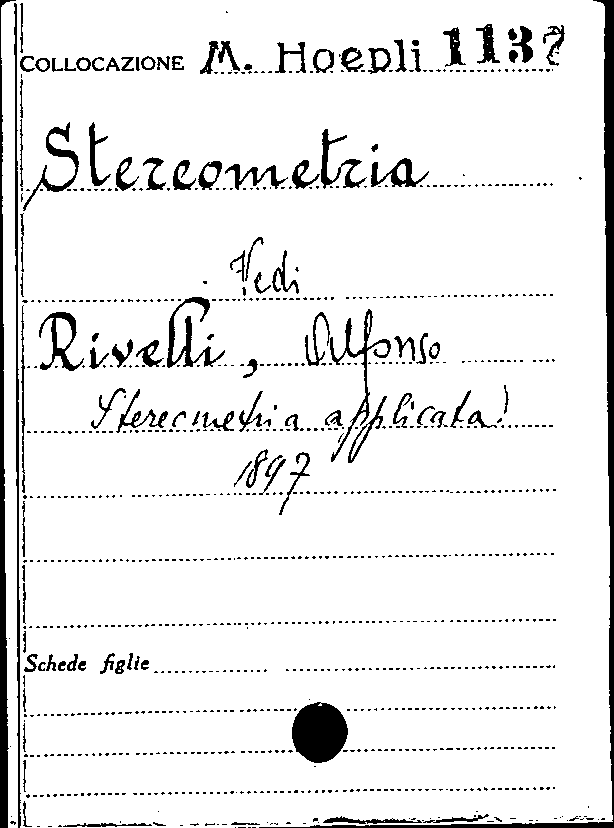 COLLOCAZIONE M. Hoepli 1137
Stereometria
Vedi
Rivelli, Alfonso
Stereometria applicata!
1897
Schede figlie